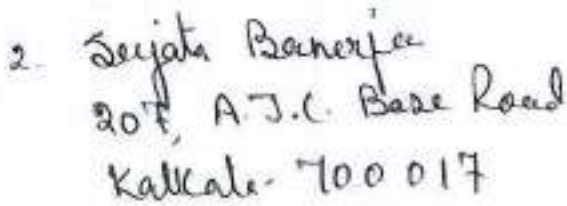 2. Sujata Banerjee
207, A.J.C. Base Road
Kalkale- 700 017